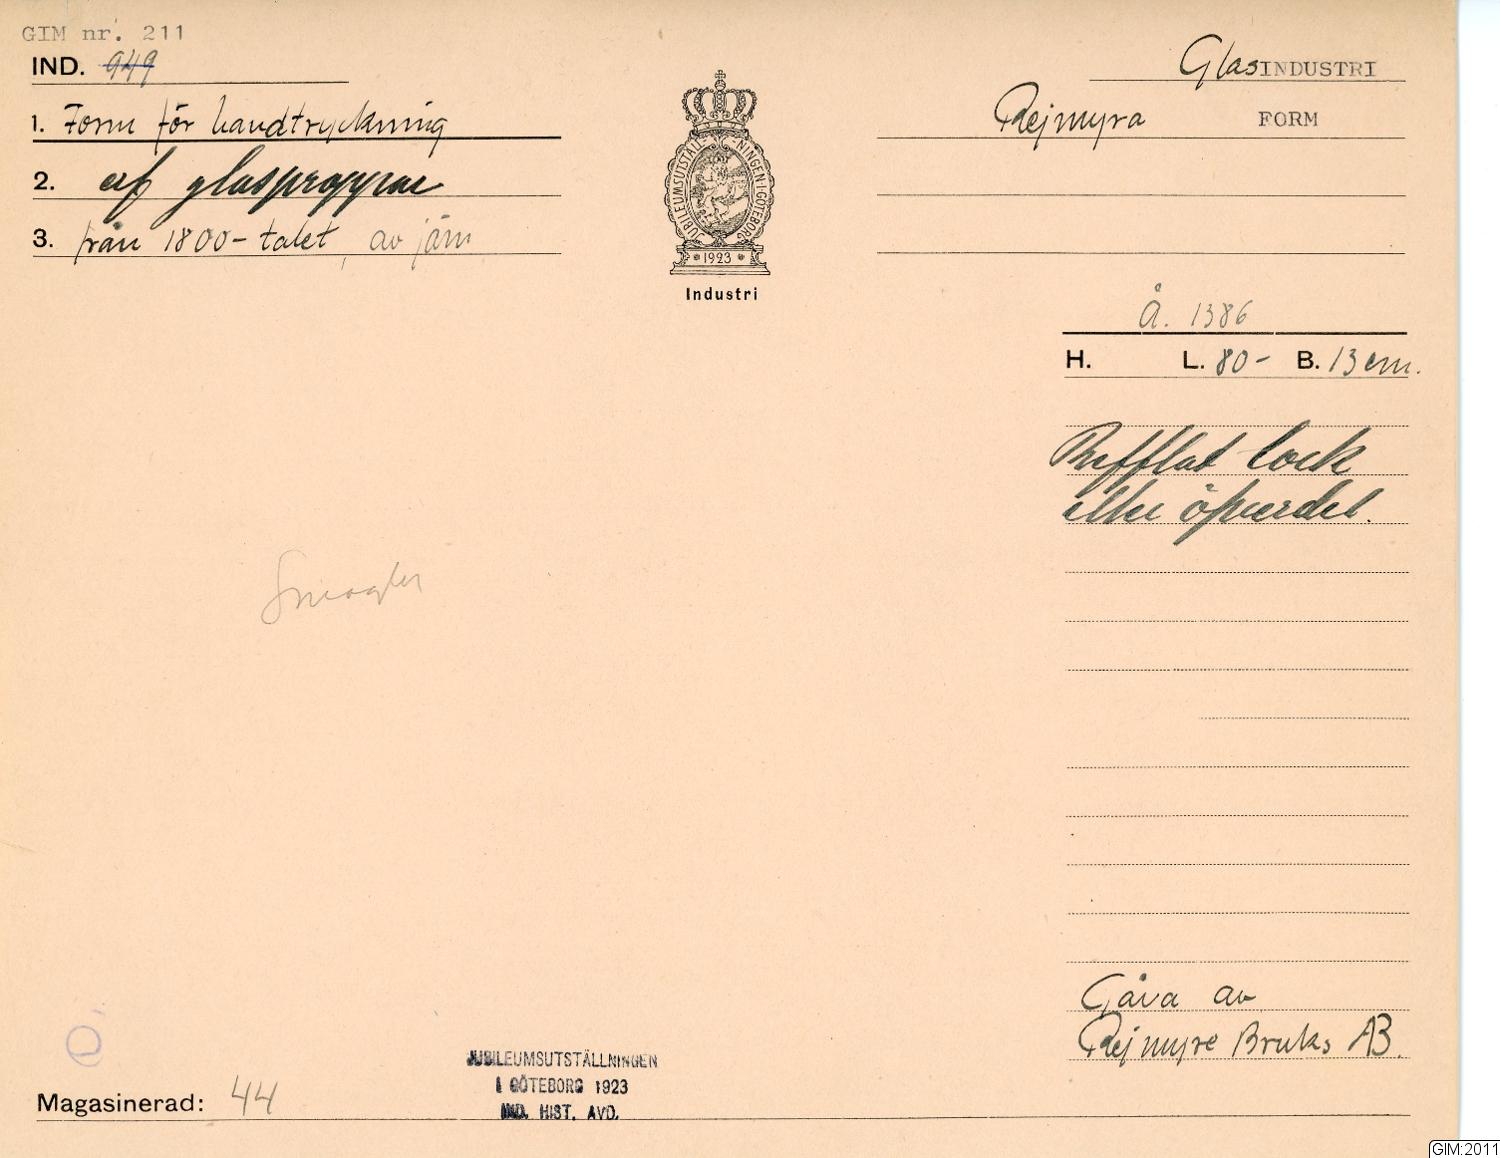 GIM nr. 211
IND. 949
GlasINDUSTRI
1. Form för handtryckning
Rejmyra FORM
2. af glasproppar
3. från 1800-talet, av järn
JUBILEUMSUTSTÄLLNINGEN I GÖTEBORG
1923
Industri
Å. 1386
H. L. 80- B. 13 cm.
Refflat lock
eller öfverdel.
Gåva av
Rejmyre Bruks AB.
JUBILEUMSUTSTÄLLNINGEN
I GÖTEBORG 1923
IND. HIST. AVD.
Magasinerad: 44
GIM:2011